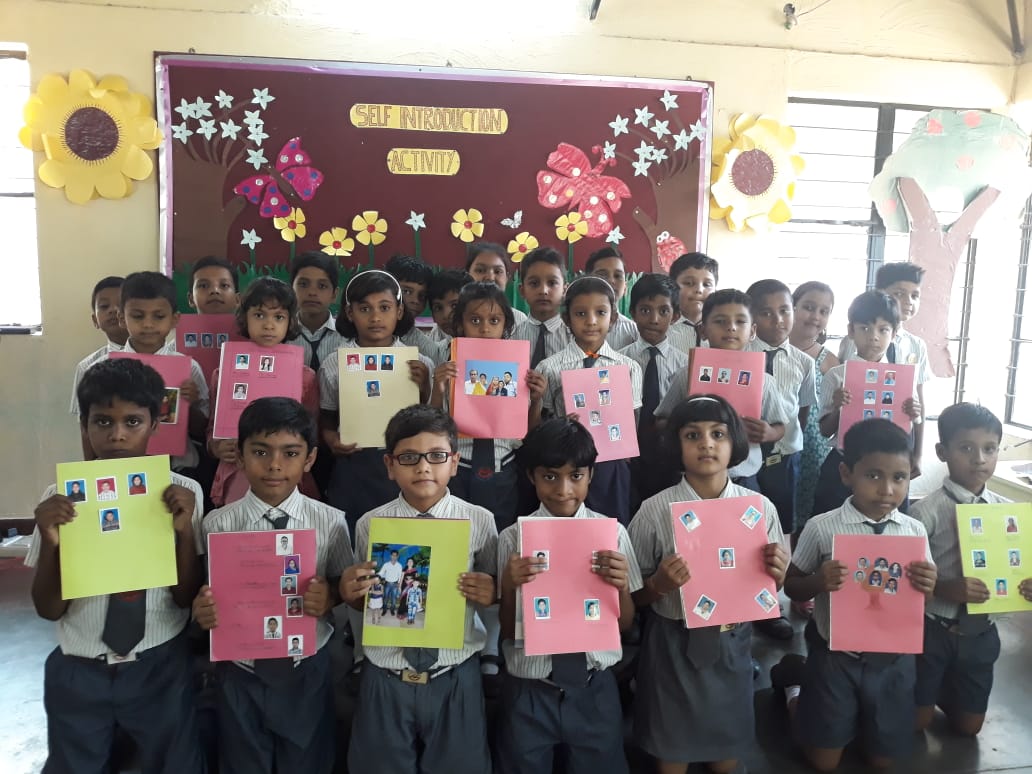 SELF INTRODUCTION
ACTIVITY